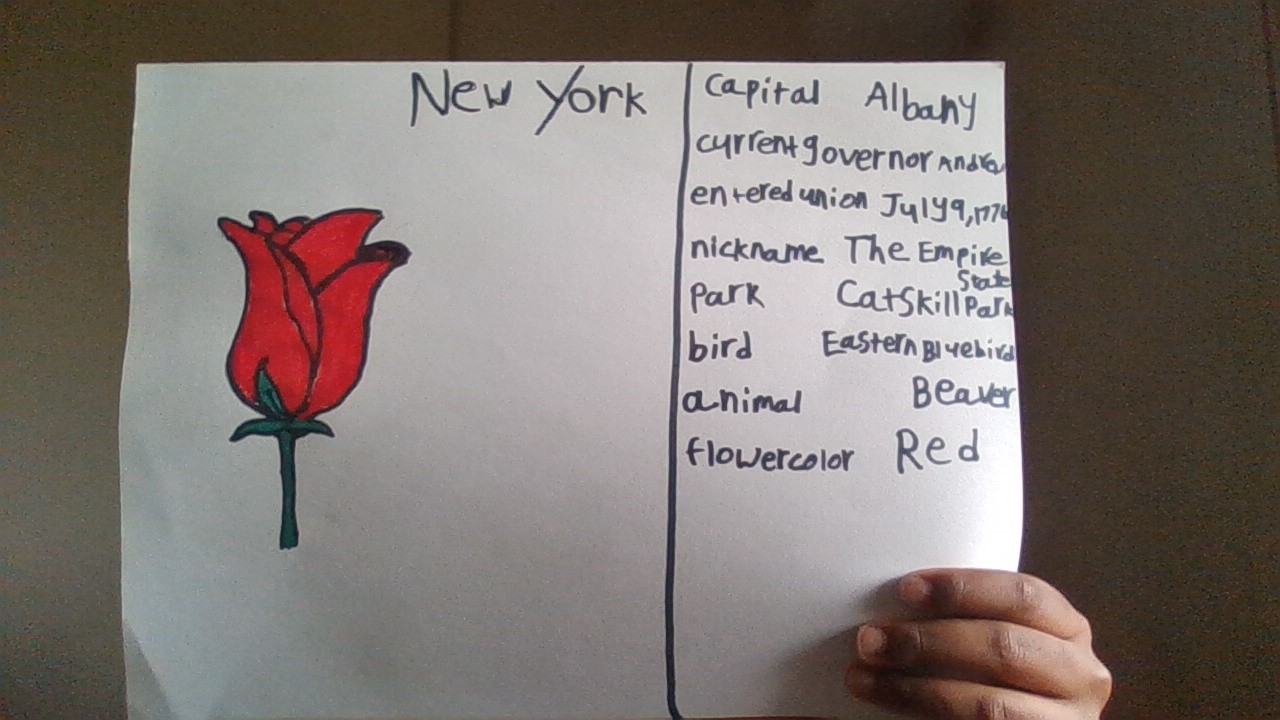 New York
capital Albany
current governor
entered union July 9, 1776
nickname The Empire
State
park Catskill Park
bird Eastern Bluebird
animal Beaver
flower color Red